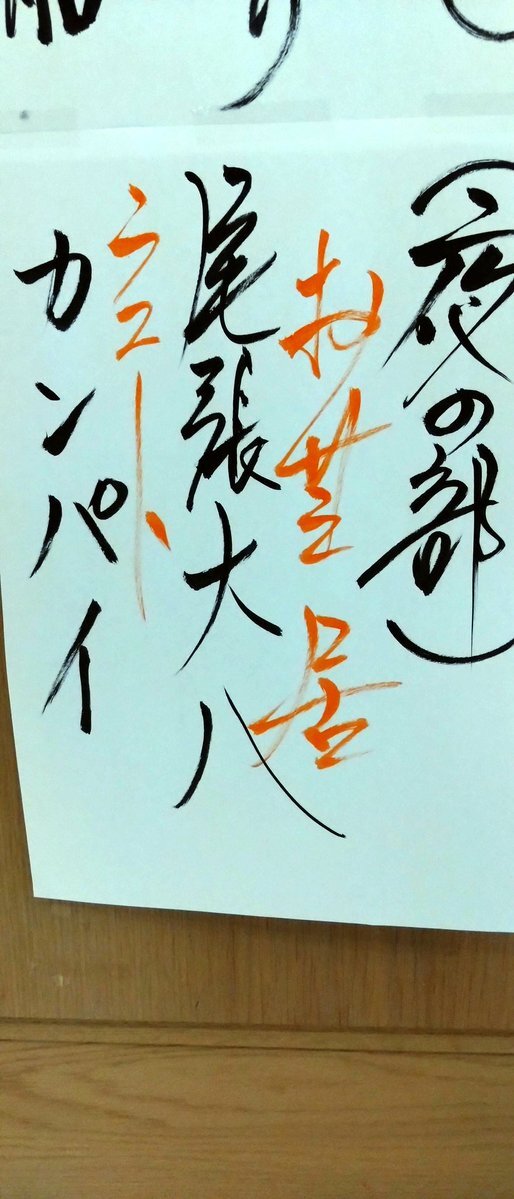 (夜の部)
お芝居
尾張大八
ショー
カンパイ